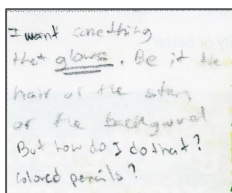 I want something
that glows. Be it the
hair of the
or the background
But how do I do that?
Colored pencils?